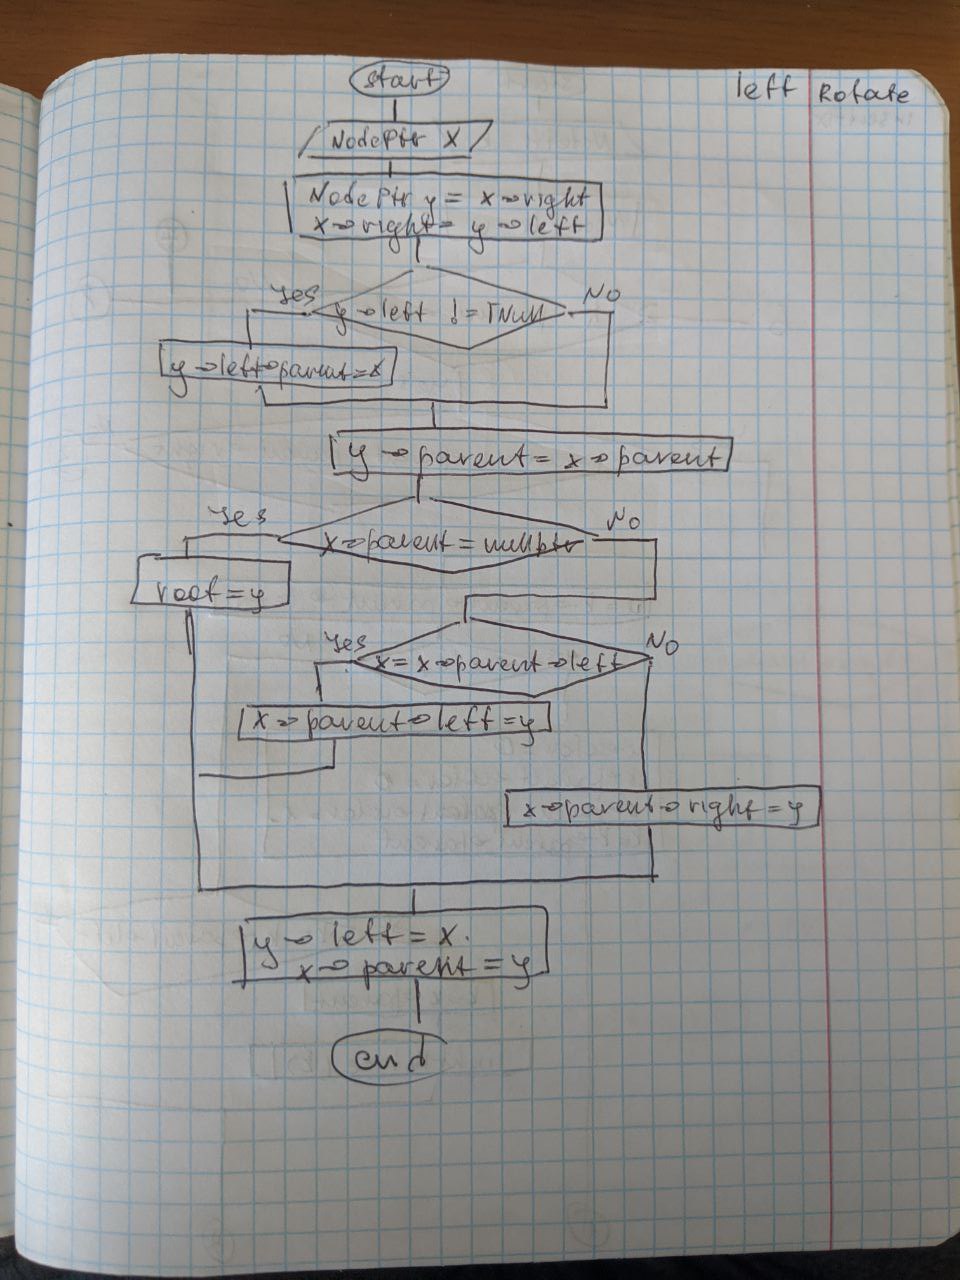 left Rotate
start
NodePtr x
NodePtr y = x→right
x→right = y→left
Yes
No
y→left != TNull
y→left→parent=x
y→parent = x→parent
Yes
No
x→parent = nullptr
root = y
Yes
No
x = x→parent→left
x→parent→left = y
x→parent→right = y
y→left = x.
x→parent = y
end